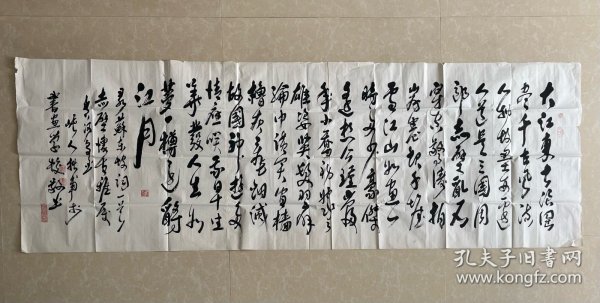 大江東去浪淘
尽千古风流
人物故垒西边
人道是三國周
郎赤壁乱石
穿空惊涛拍
岸卷起千堆
雪江山如画一
時多少豪傑
遥想公瑾当年
小乔初嫁了
雄姿英发羽扇
纶巾谈笑间樯
櫓灰飞烟灭
故国神遊多
情应笑我早生
華发人生如
梦一樽还酹
江月
录蘇东坡词一首
赤壁懷古
書画学校
孔夫子旧书网
www.kongfz.com